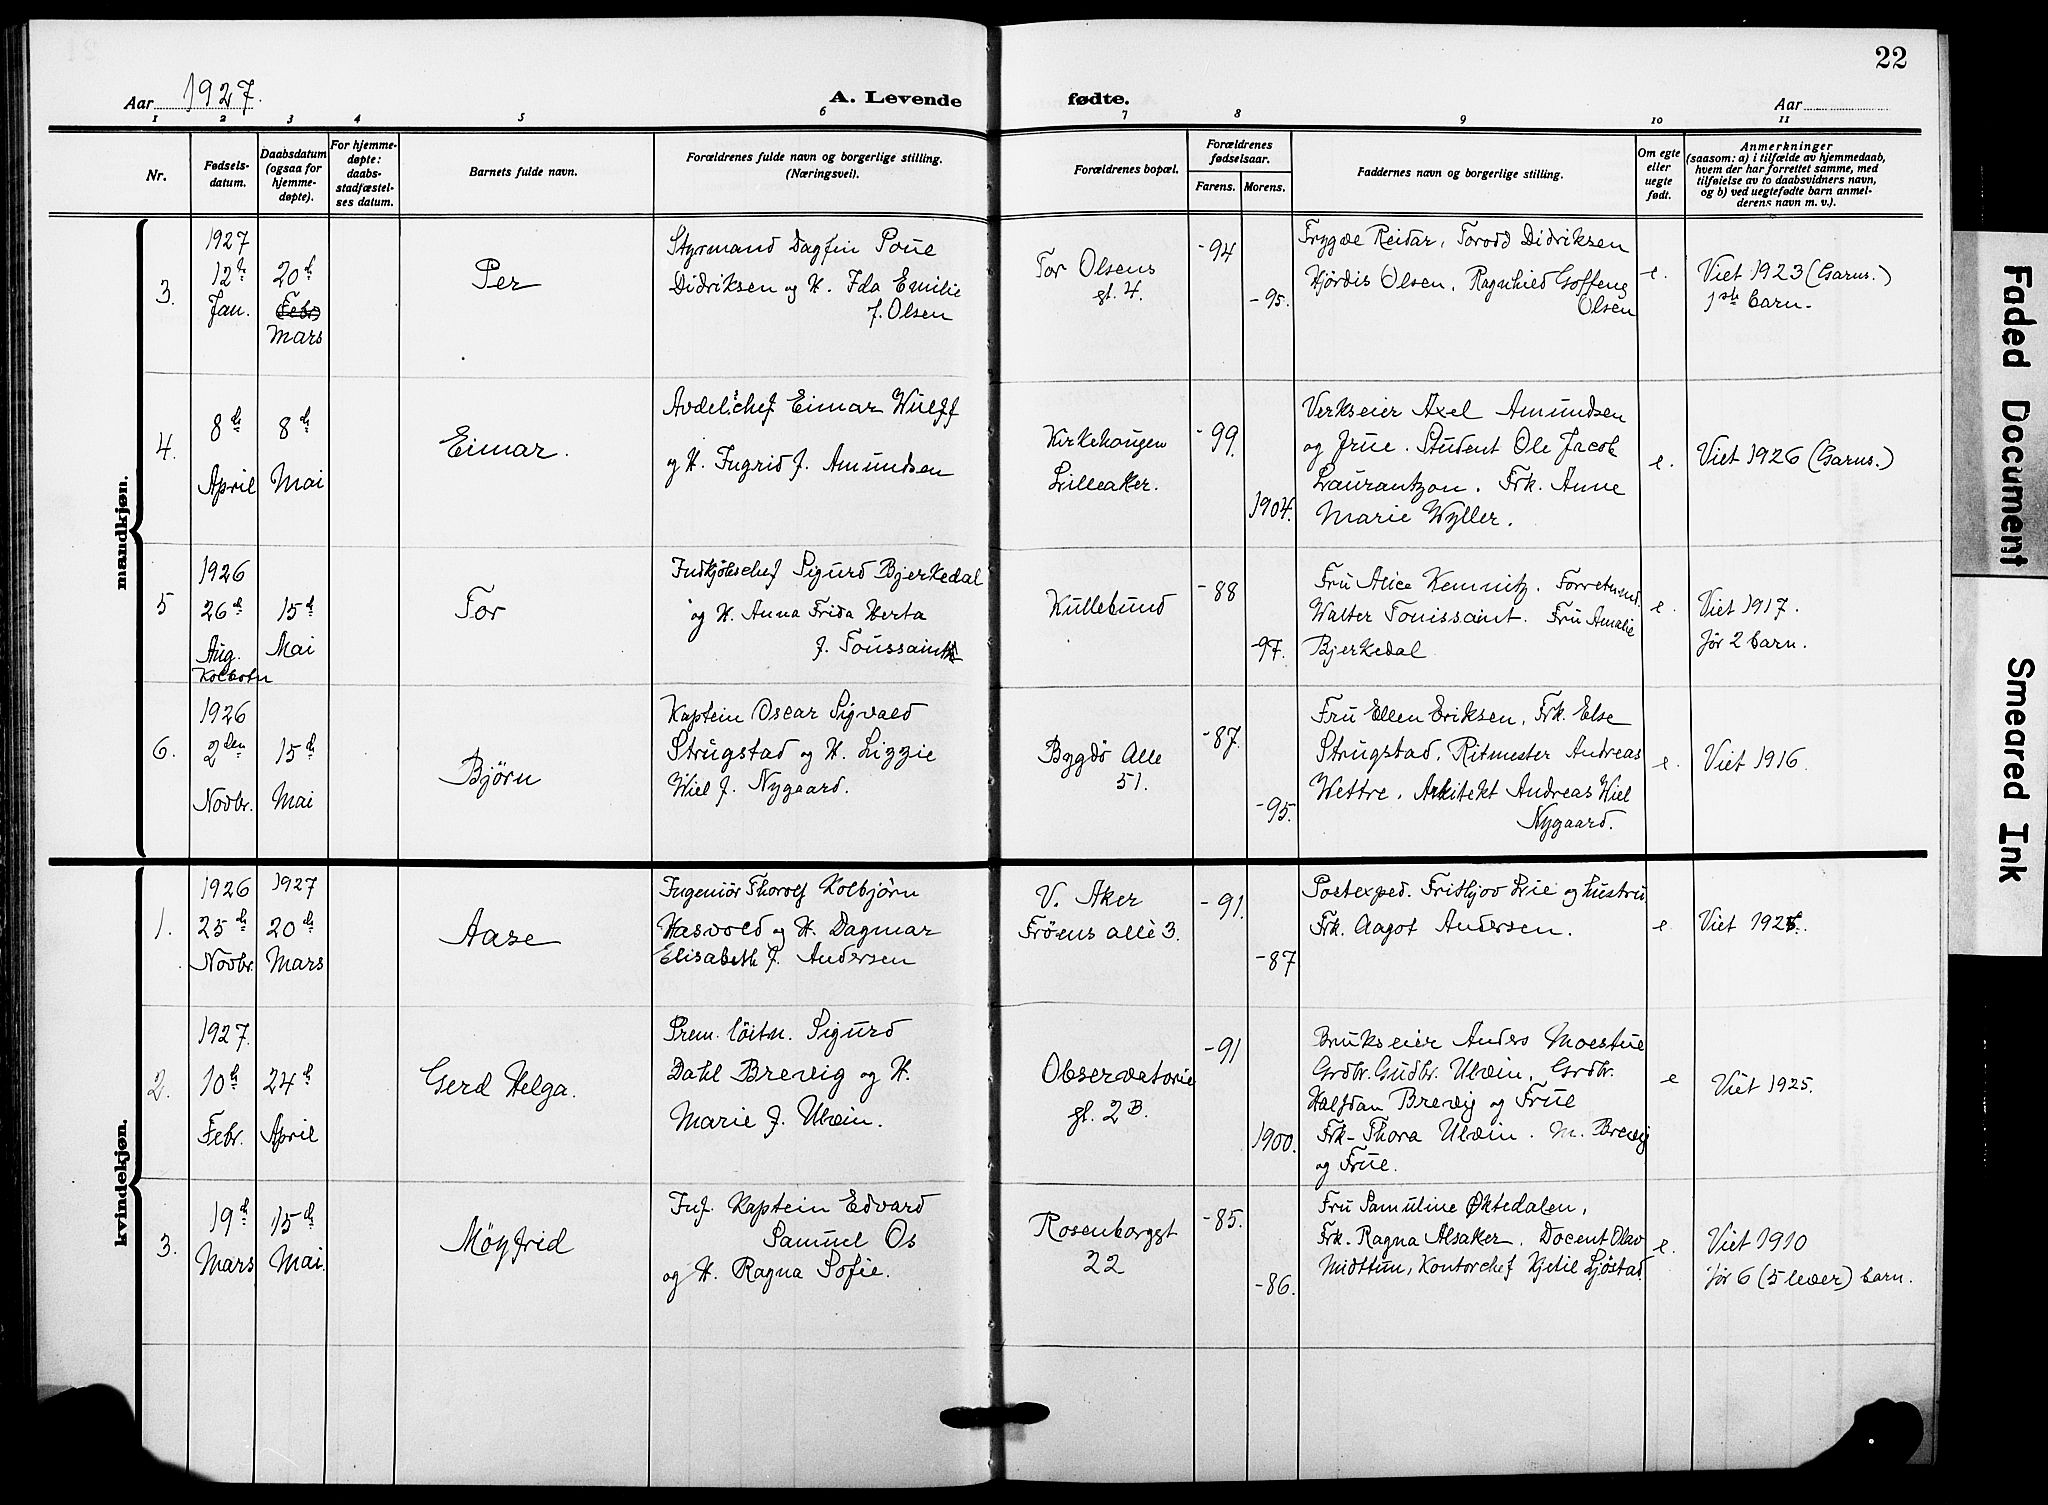 22
Aar 1927.
A. Levende
fødte.
Aar
1 2 3 4 5 6 7 8 9 10 11
Nr.
Fødsels-
datum.
Daabsdatum
(ogsaa for
hjemme-
døpte).
For hjemme-
døpte:
daabs-
stadfæstel-
ses datum.
Barnets fulde navn.
Forældrenes fulde navn og borgerlige stilling.
(Næringsvei).
Forældrenes bopæl.
Forældrenes
fødselsaar.
Farens. Morens.
Faddernes navn og borgerlige stilling.
Om egte
eller
uegte
født.
Anmerkninger
(saasom: a) i tilfælde av hjemmedaab,
hvem der har forrettet samme, med
tilføielse av to daabsvidners navn,
og b) ved uegtefødte barn anmel-
derens navn m. v.).
mandkjøn.
3.
1927
12te
Jan.
20de
Febr
Mars
Per
Styrmand Dagfin Poue
Didriksen og H. Ida Emilie
f. Olsen
Tor Olsens
gt. 4.
-94
-95.
Trygde Reidar, Torodd Didriksen
Hjördis Olsen, Ragnhild Goffeng
Olsen
e.
Viet 1923 (Garns.)
1ste barn.
4.
8de
April
8de
Mai
Eimar.
Avdel.schef Eimar Wulff
og H. Ingrid f. Amundsen
Kirkehaugen
Lilleaker.
-99.
1904.
Verkseier Axel Amundsen
og frue. Student Ole Jacob
Laurantzon. Frk. Anne
Marie Wyller.
e.
Viet 1926 (Garns.)
5
1926
26de
Aug.
Kolbotn
15de
Mai
Tor
Indkjöbschef Sigurd Bjerkedal
og H. Anna Frida Herta
f. Toussaint
Kullebund
-88
-97.
Fru Alice Kemnitz. Forretnmd.
Walter Touissaint. Fru Amalie
Bjerkedal
e.
Viet 1917.
før 2 barn.
6.
1926
2den
Novbr.
15de
Mai
Björn
Kaptein Oscar Sigvald
Strugstad og H. Lizzie
Wiel f. Nygaard.
Bygdö Alle
51.
-87.
-95.
Fru Ellen Eriksen, Frk. Else
Strugstad, Ritmester Andreas
Wettre, Arkitekt Andreas Wiel
Nygaard.
e.
Viet 1916.
kvindekjøn.
1.
1926
25de
Novbr.
1927
20de
Mars
Aase
Ingeniör Thorolf Kolbjörn
Hasvold og H. Dagmar
Elisabeth f. Andersen
V. Aker
Fröens allè 3.
-91.
-87
Postexped. Frithjov Lie og hustru
Frk. Aagot Andersen.
e
Viet 192
2.
1927.
10de
Febr.
24de
April
Gerd Helga.
Prem. löitn. Sigurd
Dahl Brevig og H.
Marie f. Ulvin.
Observatorie
gt. 2B.
-91
1900.
Brukseier Anders Moestue
Grdbr. Gudbr. Ulvin, Grdbr.
Halfdan Brevig og Frue
Frk. Thora Ulvin. M. Brevig
og Frue.
e
Viet 1925.
3.
19de
Mars
15de
Mai.
Möyfrid
Inf. Kaptein Edvard
Samuel Os
og H. Ragna Sofie.
Rosenborggt
22
-85.
-86.
Fru Samuline Øktedalen,
Frk. Ragna Alsaker. Docent Olav
Midttun, Kontorchef Kjetil Sjöstad
e.
Viet 1910
før 6 (5 lever) barn.
Faded Document
Smeared Ink